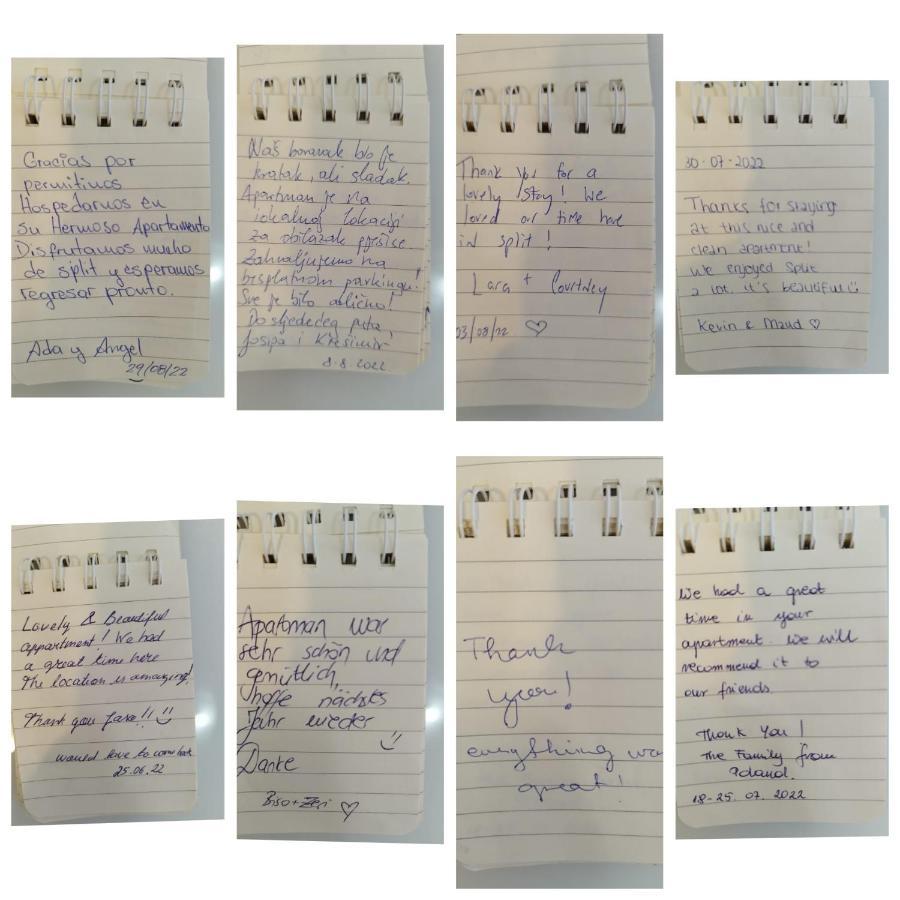 Gracias por
permitirnos
Hospedarnos en
su Hermoso Apartamento
Disfrutamos mucho
de split y esperamos
regresar pronto.
Ada y Angel
29/08/22
Naš boravak bio je
kratak, ali sladak.
Apartman je na
lokaciji
za obilazak pješice.
Zahvaljujemo na
besplatnom parkingu!
Sve je bilo odlično!
Do sljedećeg puta,
Josipa i Krešimir
8.8.2022
Thank you for a
lovely stay! We
loved our time here
in split!
Lara + Courtney
03/08/22 ♡
30-07-2022
Thanks for staying
at this nice and
clean apartment!
We enjoyed Split
a lot. it's beautiful
Kevin & Maud ♡
Lovely & Beautiful
appartment! We had
a great time here
The location is amazing!
Thank you !!
would love to come back
25.06.22
Apartman war
sehr schön und
gemütlich,
hoffe nächstes
Jahr wieder
Danke
♡
Thank
you!
everything wa
great!
We had a great
time in your
apartment. We will
recommend it to
our friends.
Thank You!
The Family from
18-25.07.2022